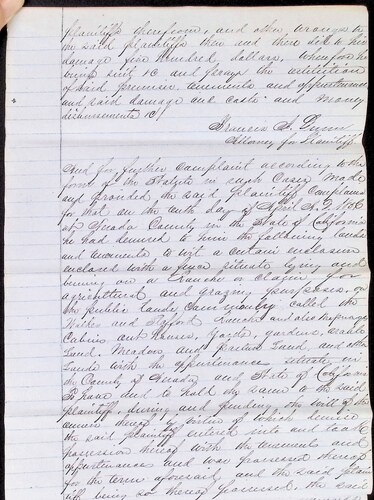 plaintiffs therefrom, and other wrongs to
the said plaintiffs then and there did to his
damage five hundred dollars. Wherefore he
brings suit &c and prays the restitution
of said premises, tenements and appurtenances
and said damage and costs and money
disbursements &c
Francis J. Dunn
Attorney for Plaintiff
And for further complaint according to the
form of the Statute in such Cases Made
and provided the said plaintiff Complains
for that on the day of April A.D.
at Nevada County in the State of California
he had demised to him the following lands
and tenements to wit a certain inclosure
inclosed with a fence situate lying and
being on a Ranche or claim for
agricultural and grazing purposes, on
the public lands commonly called the
and also
Cabins out houses, gardens, arable
Land, Meadow and pasture Land and other
Lands with the appurtenances situate in
the County of Nevada and State of California
To have and to hold the same to the said
plaintiff, during and pending the will of the
thereof by virtue of which demise
the said plaintiff entered into and took
possession thereof with the tenements and
appurtenances and was possessed thereof
for the term aforesaid and the said plain
tiff being so thereof possessed, the said